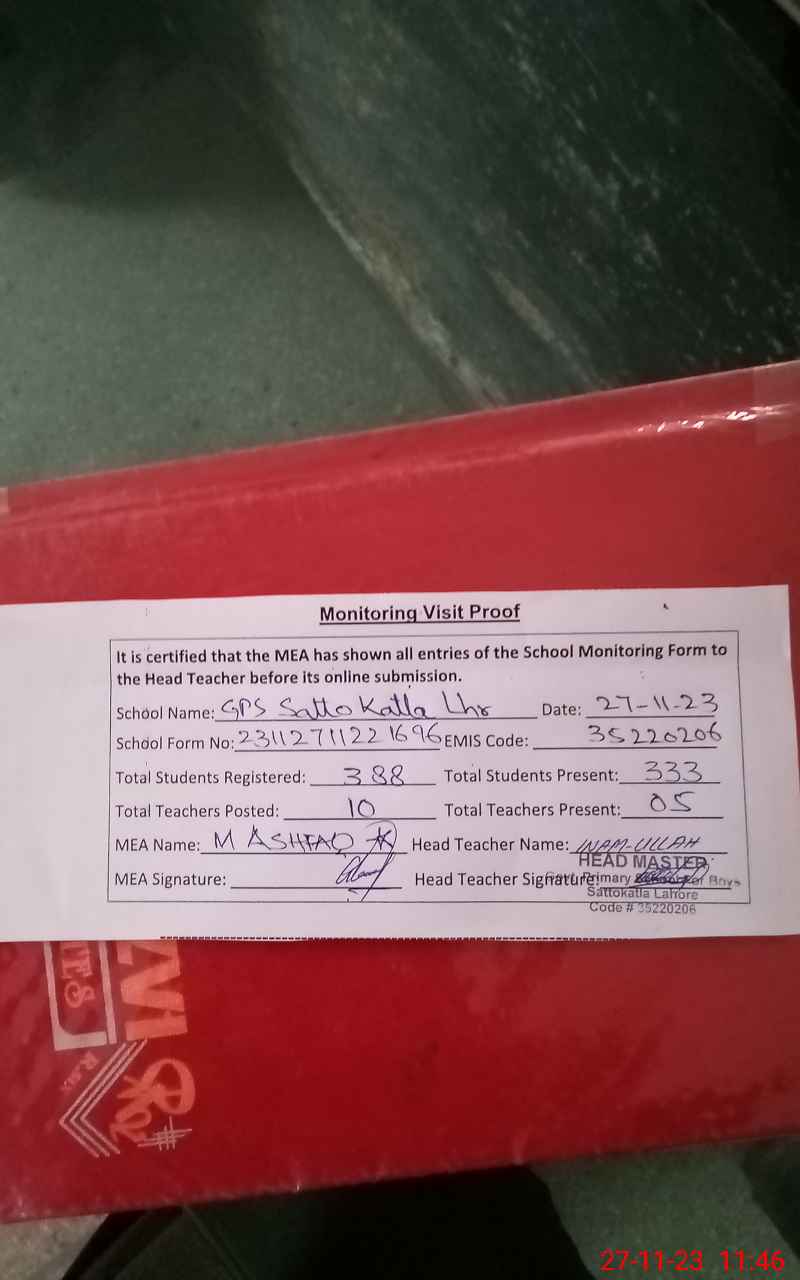 Monitoring Visit Proof
It is certified that the MEA has shown all entries of the School Monitoring Form to
the Head Teacher before its online submission.
School Name: GPS Satto Katla Lhr Date: 27-11-23
School Form No: 23112711221696 EMIS Code: 35220206
Total Students Registered: 388 Total Students Present: 333
Total Teachers Posted: 10 Total Teachers Present: 05
MEA Name: M ASHFAQ Head Teacher Name: INAM-ULLAH
HEAD MASTER
MEA Signature: Head Teacher Signature:
Govt. Primary School For Boys
Sattokatla Lahore
Code # 35220206
27-11-23 11:46